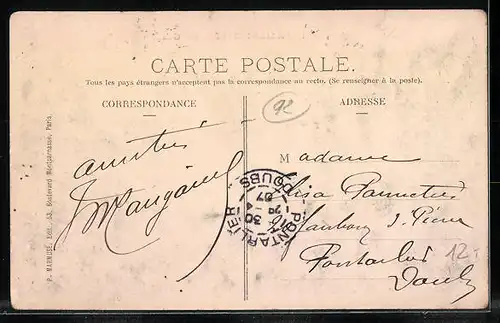 CARTE POSTALE.
Tous les pays étrangers n'acceptent pas la correspondance au recto. (Se renseigner à la poste).
CORRESPONDANCE
ADRESSE
92
amitiés
Madame
PONTARLIER
DOUBS
30
4
07
Pontarlier
Doubs
12
P. MARMUSE, Edit., 53, Boulevard Montparnasse, Paris.